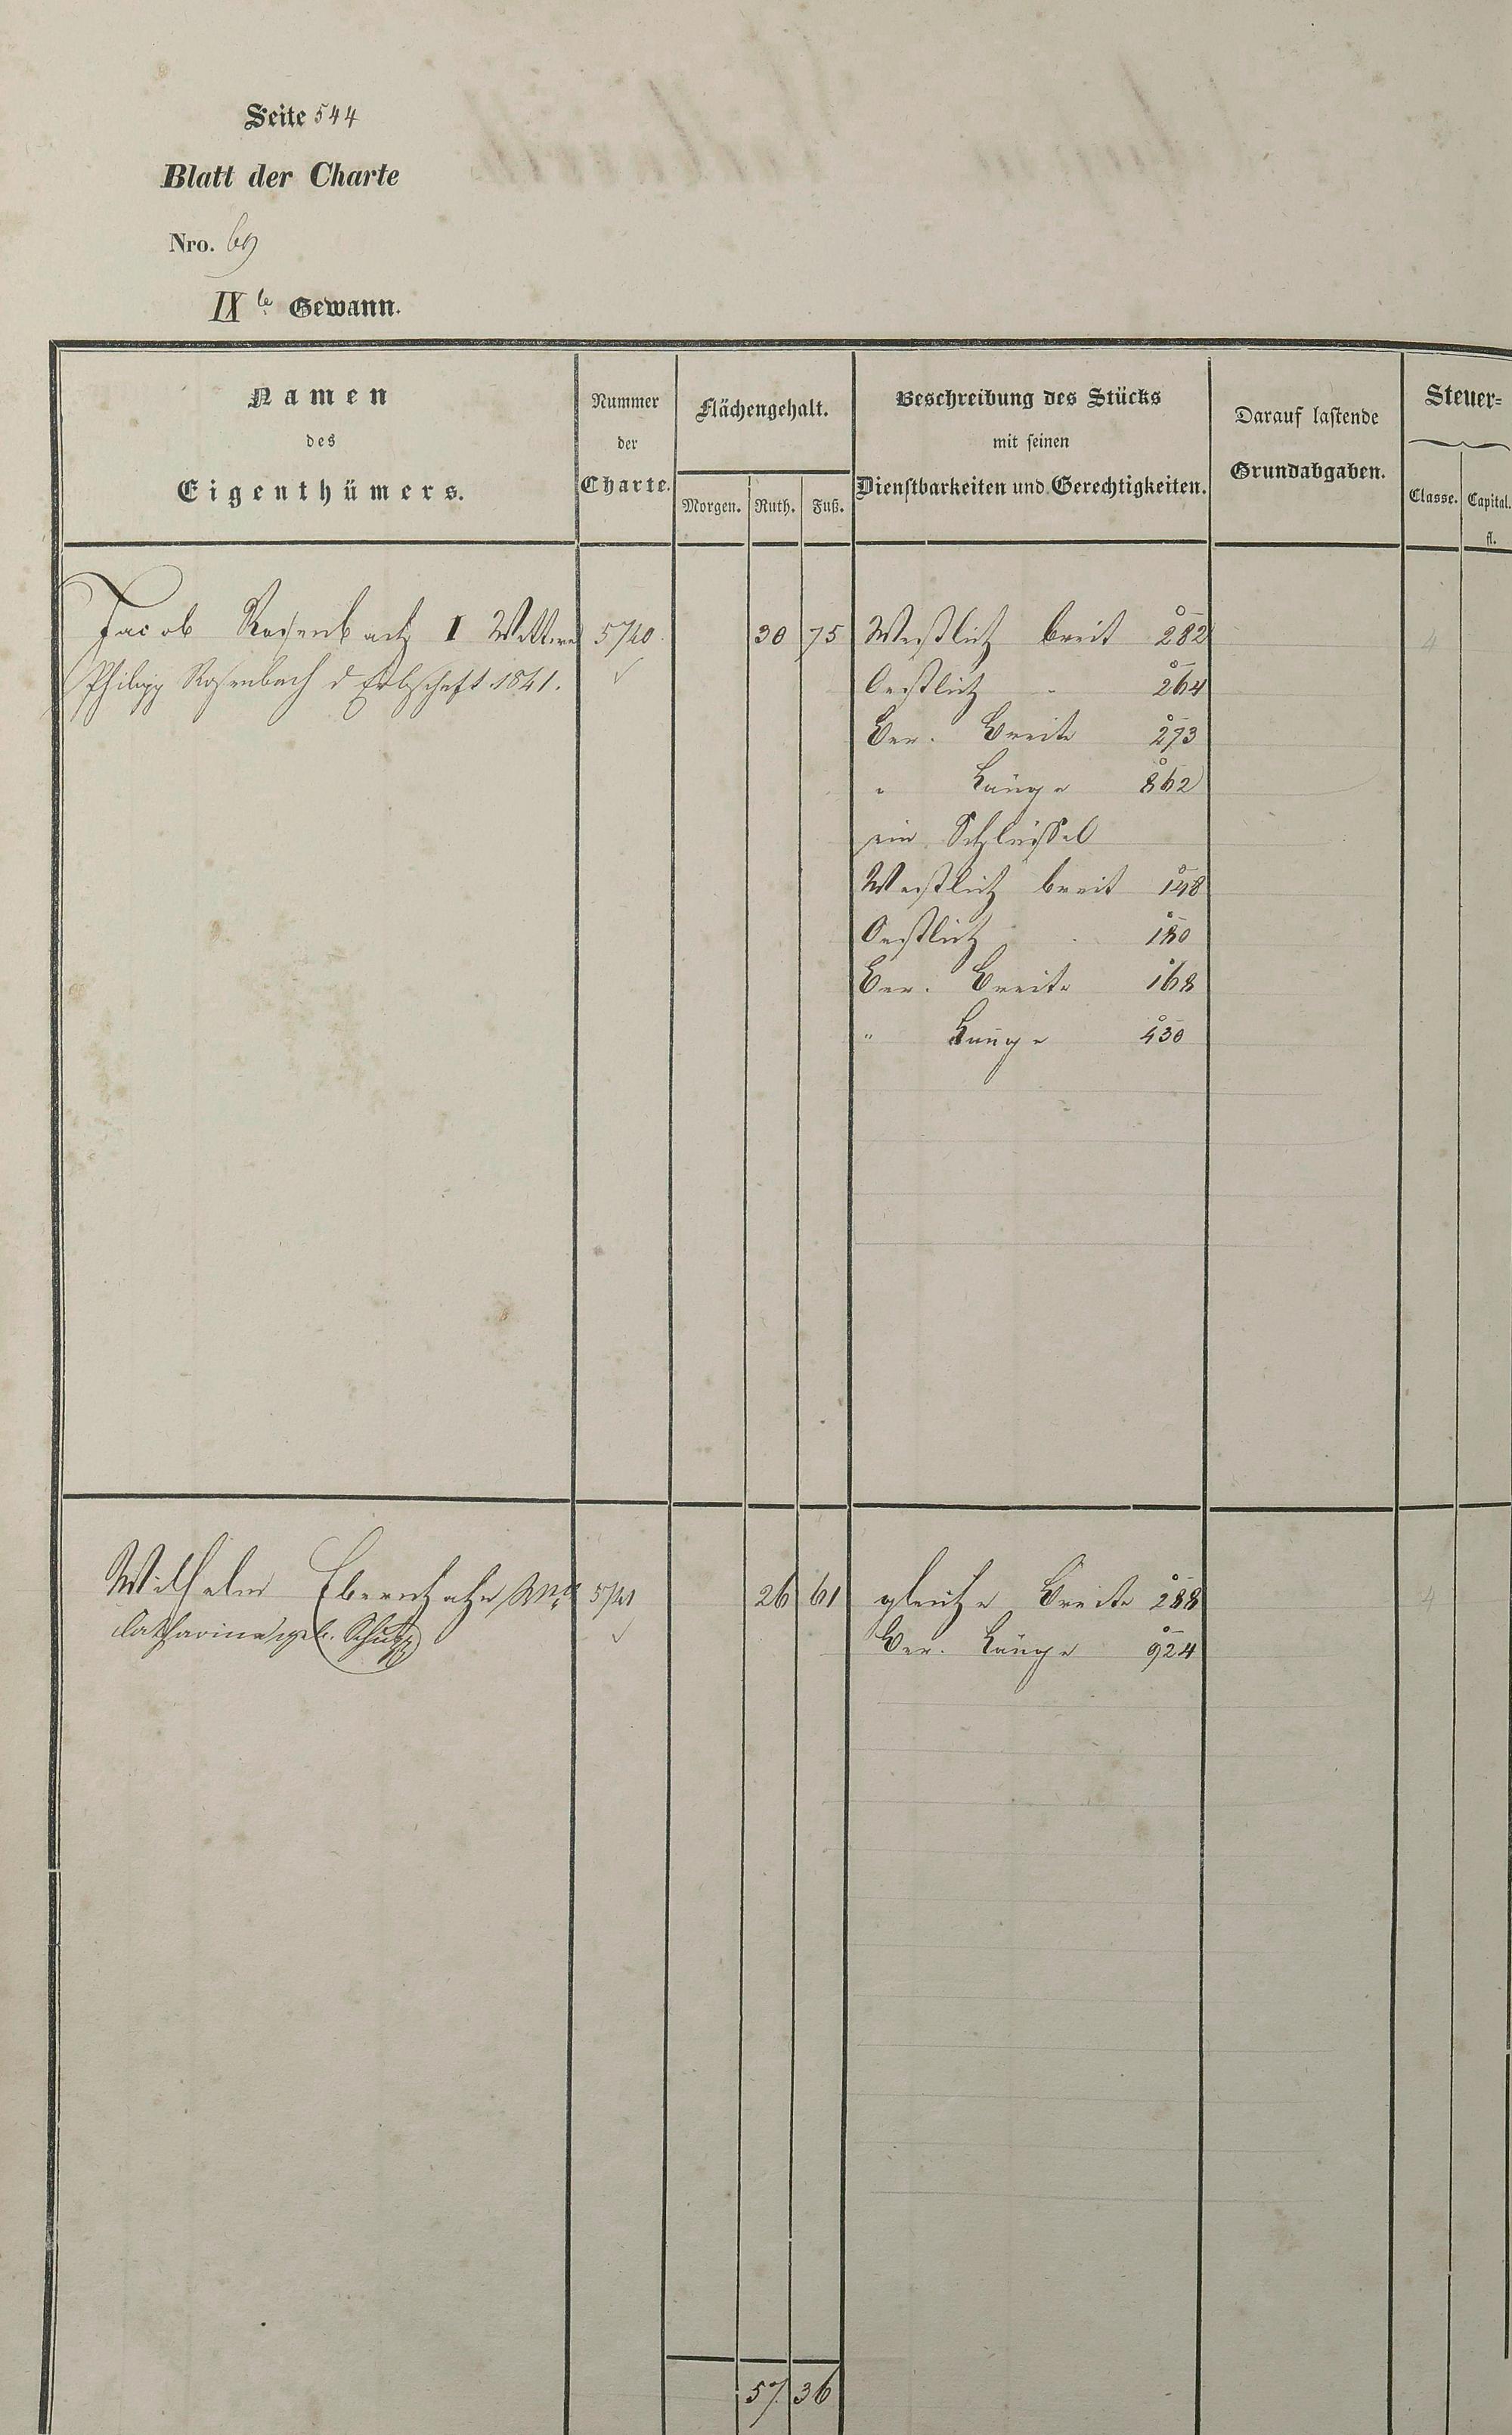 Seite 544
Blatt der Charte
Nro. 69
IX te Gewann.
Namen
des
Eigenthümers.
Nummer
der
Charte.
Flächengehalt.
Morgen. Ruth. Fuß.
Beschreibung des Stücks
mit seinen
Dienstbarkeiten und Gerechtigkeiten.
Darauf lastende
Grundabgaben.
Steuer=
Classe. Capital.
fl.
Jacob Rosenbach I Wittwe 5740 30 75 Westlich breit 282 4
Philipp Rosenbach d Erbschaft 1841. Oestlich " 264
Ver. Breite 273
" Länge 862
ein Schlüssel
Westlich breit 148
Oestlich " 180
Ver. Breite 168
" Länge 430
Wilhelm Ebernhahn 5741 26 61 gleiche Breite 288 4
Catharina geb. Schupp Ver. Länge 924
57 36